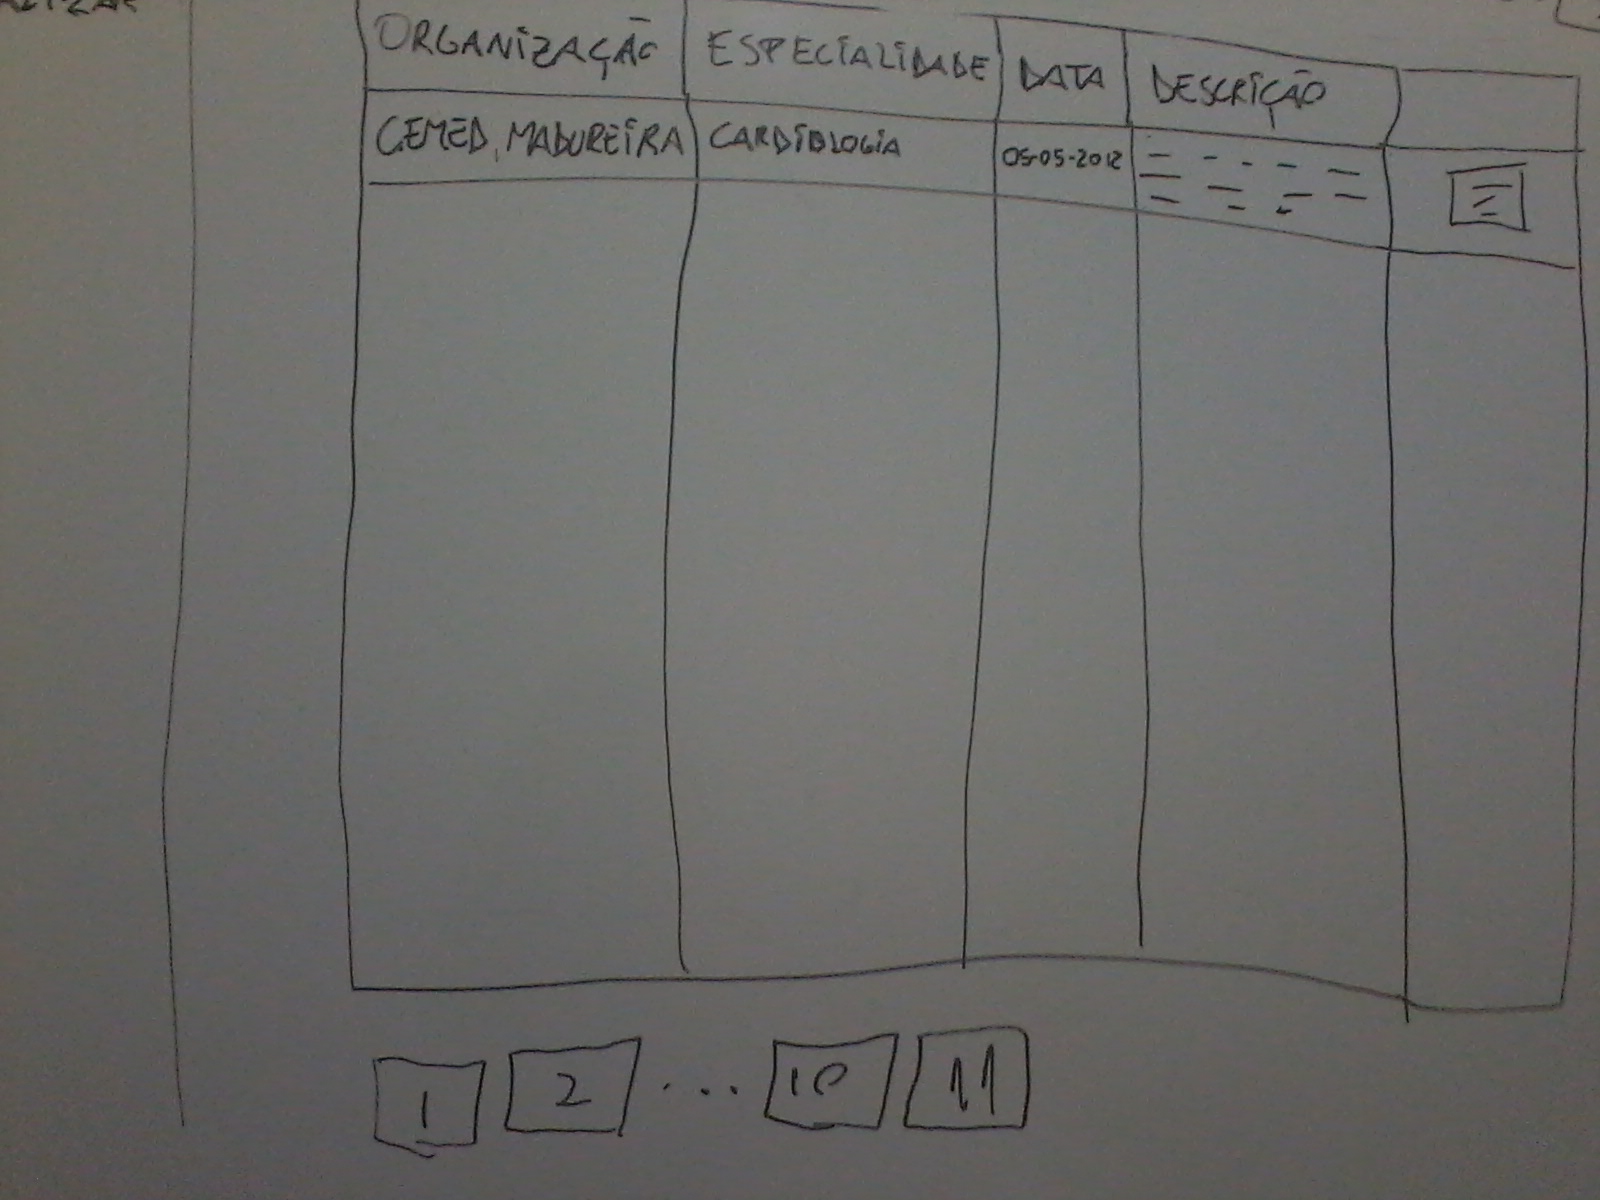 ORGANIZAÇÃO ESPECIALIDADE DATA DESCRIÇÃO
CEMED, MADUREIRA CARDIOLOGIA 05-05-2012
1 2 ... 10 11